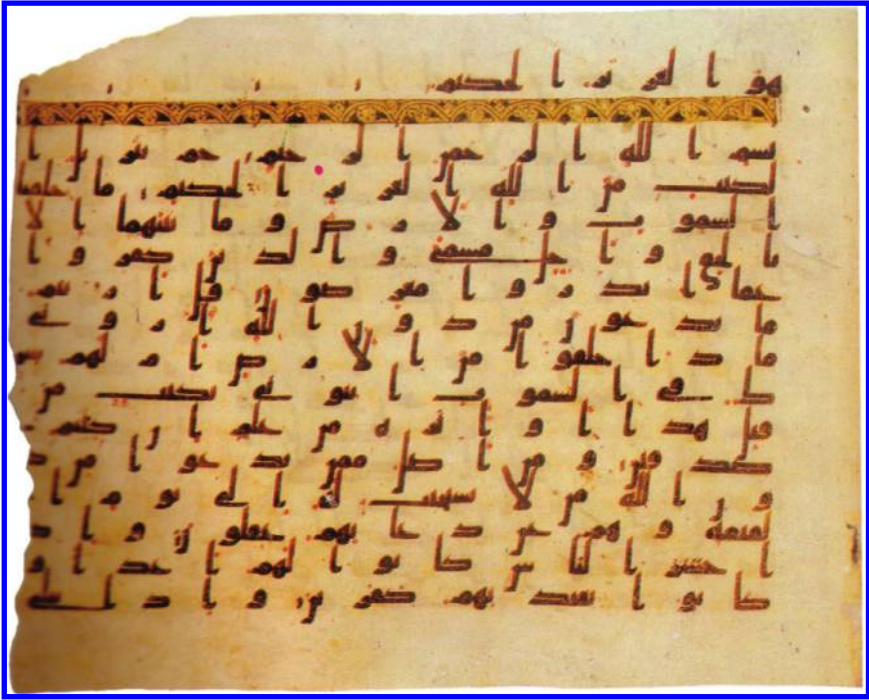 هو العزيز الحكيم
بسم الله الرحمن الرحيم حم تنزيل ا
لكتب من الله العزيز الحكيم ما خلقنا
السموت والارض وما بينهما الا
بالحق واجل مسمى والذين كفروا
عما انذروا معرضون قل اريتم
ما تدعون من دون الله اروني
ماذا خلقوا من الارض ام لهم شر
ك في السموت ايتوني بكتب من
قبل هذا او اثرة من علم ان كنتم
صدقين ومن اضل ممن يدعوا من د
ون الله من لا يستجيب له الى يوم ا
لقيمة وهم عن دعايهم غفلون واذ
ا حشر الناس كانوا لهم اعدا و
كانوا بعبدتهم كفرين واذا تتلى